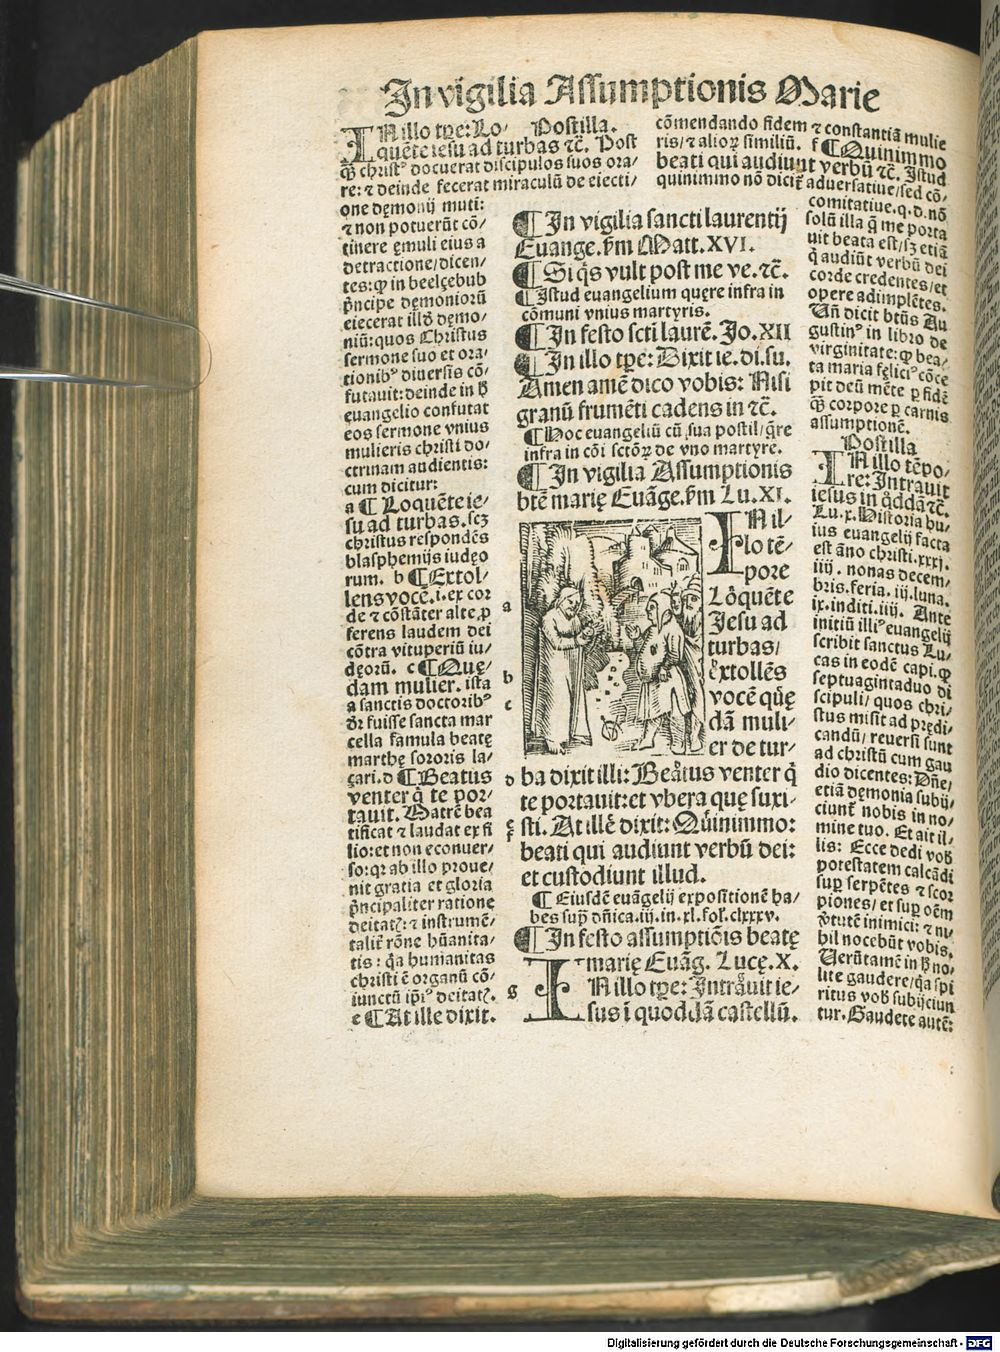 In vigilia Assumptionis Marie
IN illo tꝑe: Lo⸗ Postilla.
quẽte iesu ad turbas ⁊c̃. Post
ꝙ̃ christꝰ docuerat discipulos suos ora⸗
re: ⁊ deinde fecerat miraculũ de eiecti⸗
one dęmonij muti:
⁊ non potuerũt cõ⸗
tinere ęmuli eius a
detractione/dicen⸗
tes: ꝙ in beelçebub
p̃ncipe dęmoniorũ
eiecerat illd̃ dęmo⸗
niũ: quos Christus
sermone suo et ora⸗
tionibꝰ diuersis cõ⸗
futauit: deinde in h̃
euangelio confutat
eos sermone vnius
mulieris christi do⸗
ctrinam audientis:
cum dicitur:
a ¶ Loquẽte ie⸗
su ad turbas. scȝ
christus respondẽs
blasphemijs iudęo
rum. b ¶ Extol⸗
lens vocẽ. i. ex cor
de ⁊ cõstãter alte ꝓ
ferens laudem dei
cõtra vituperiũ iu⸗
dęorũ. c ¶ Quę⸗
dam mulier. ista
a sanctis doctoribꝰ
dr̃ fuisse sancta mar
cella famula beatę
marthę sororis la⸗
çari. d ¶ Beatus
venter q̃ te por⸗
tauit. Matrẽ bea
tificat ⁊ laudat ex fi
lio: et non econuer⸗
so: qꝛ ab illo proue⸗
nit gratia et gloria
p̃ncipaliter ratione
deitatꝭ: ⁊ instrumẽ⸗
talit̃ rõne hũanita⸗
tis: q̃a humanitas
christi ẽ organũ cõ⸗
iunctũ ip̃iꝰ deitatꝭ.
e ¶ At ille dixit.
cõmendando fidem ⁊ constantiã mulie
ris/⁊ alioꝝ similiũ. f ¶ Quinimmo
beati qui audiunt verbũ ⁊c̃. Istud
quinimmo nõ dicit̃ aduersatiue/sed cõ⸗
comitatiue. q. d. nõ
solũ illa q̃ me porta
uit beata est/sȝ etiã
q̃ audiũt verbũ dei
corde credentes/et
opere adimplẽtes.
Vñ dicit btũs Au
gustinꝰ in libro de
virginitate: ꝙ bea⸗
ta maria fęliciꝰ cõce
pit deũ mẽte ꝑ fidẽ
ꝙ̃ corpore ꝑ carnis
assumptionẽ.
¶ In vigilia sancti laurentij
Euange. ẜm Matt. XVI.
¶ Si q̃s vult post me ve. ⁊c̃.
¶ Istud euangelium quęre infra in
cõmuni vnius martyris.
¶ In festo scti laurẽ. Jo. XII
¶ In illo tꝑe: Dixit ie. di. su.
Amen amẽ dico vobis: Nisi
granũ frumẽti cadens in ⁊c̃.
¶ Hoc euangeliũ cũ sua postil/q̃re
infra in cõi sctõꝝ de vno martyre.
¶ In vigilia Assumptionis
btẽ marię Euãge. ẜm Lu. XI.
IN il⸗
lo tẽ⸗
pore
a Loquẽte
Jesu ad
turbas/
b extollẽs
c vocẽ quę
dã muli⸗
er de tur⸗
d ba dixit illi: Beatus venter q̃
te portauit: et vbera quę suxi⸗
e f sti. At illé dixit: Quinimmo:
beati qui audiunt verbũ dei:
et custodiunt illud.
¶ Eiusdẽ euãgelij expositionẽ ha⸗
bes sup̃ dñica. iij. in. xl. fol. clxxxv.
¶ In festo assumptiõis beatę
marię Euãg. Lucę. X.
g IN illo tꝑe: Intrauit ie⸗
sus ĩ quoddã castellũ.
Postilla
IN illo tẽpo⸗
re: Intrauit
iesus in q̃ddã ⁊c̃.
Lu. x. Historia hu⸗
ius euangelij facta
est ãno christi. xxxj.
iiij. nonas decem⸗
bris. feria. iij. luna.
ix. inditi. iiij. Ante
initiũ illiꝰ euangelij
scribit sanctus Lu⸗
cas in eodẽ capi. ꝙ
septuagintaduo di
scipuli/quos chri⸗
stus misit ad prędi⸗
candũ/reuersi sunt
ad christũ cum gau
dio dicentes: Dñe/
etiã dęmonia subij⸗
ciunt̃ nobis in no⸗
mine tuo. Et ait il⸗
lis: Ecce dedi vob̃
potestatem calcãdi
sup̃ serpẽtes ⁊ scor
piones/et sup̃ oẽm
v̓tutẽ inimici: ⁊ ni⸗
hil nocebũt vobis.
Verũtamẽ in h̃ no⸗
lite gaudere/q̃a spi
ritus vob̃ subijciun
tur. Gaudete autẽ:
Digitalisierung gefördert durch die Deutsche Forschungsgemeinschaft - DFG